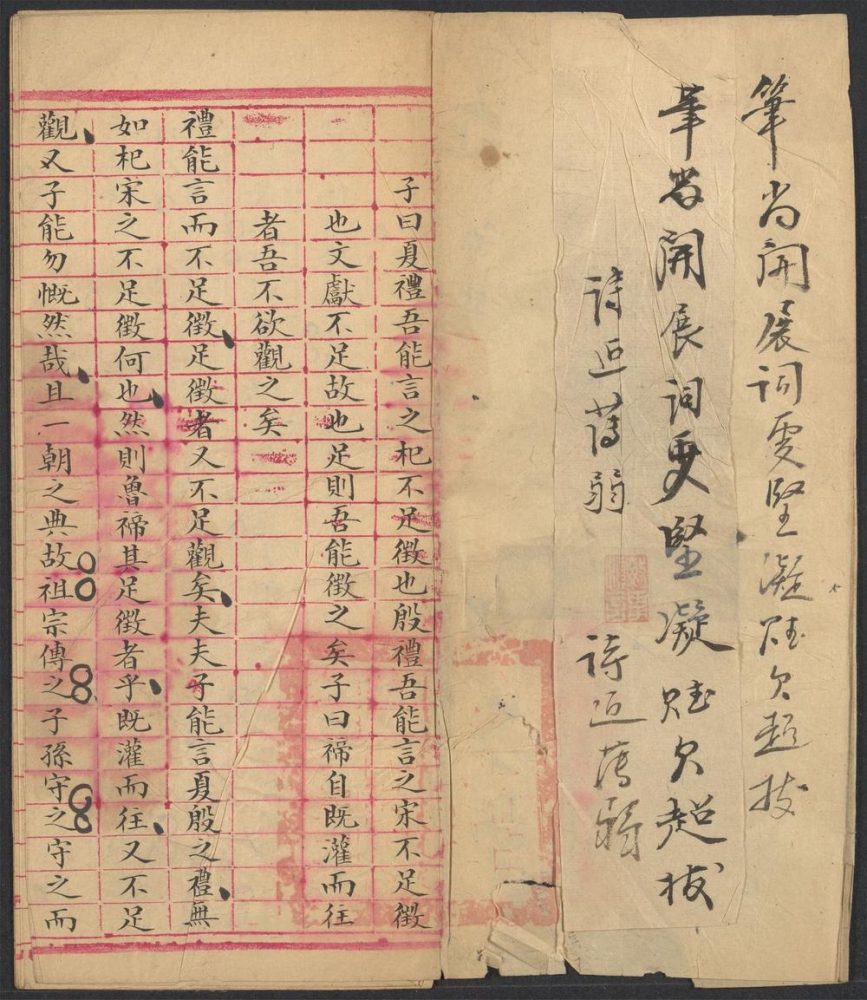 筆尚開展詞更堅凝賦欠超拔
筆尚開展詞更堅凝賦欠超拔
詩近薄弱
詩近薄弱
子曰夏禮吾能言之杞不足徵也殷禮吾能言之宋不足徵
也文獻不足故也足則吾能徵之矣子曰禘自既灌而往
者吾不欲觀之矣
禮能言而不足徵足徵者又不足觀矣夫夫子能言夏殷之禮無
如杞宋之不足徵何也然則魯禘其足徵者乎既灌而往又不足
觀又子能勿慨然哉且一朝之典故祖宗傳之子孫守之守之而